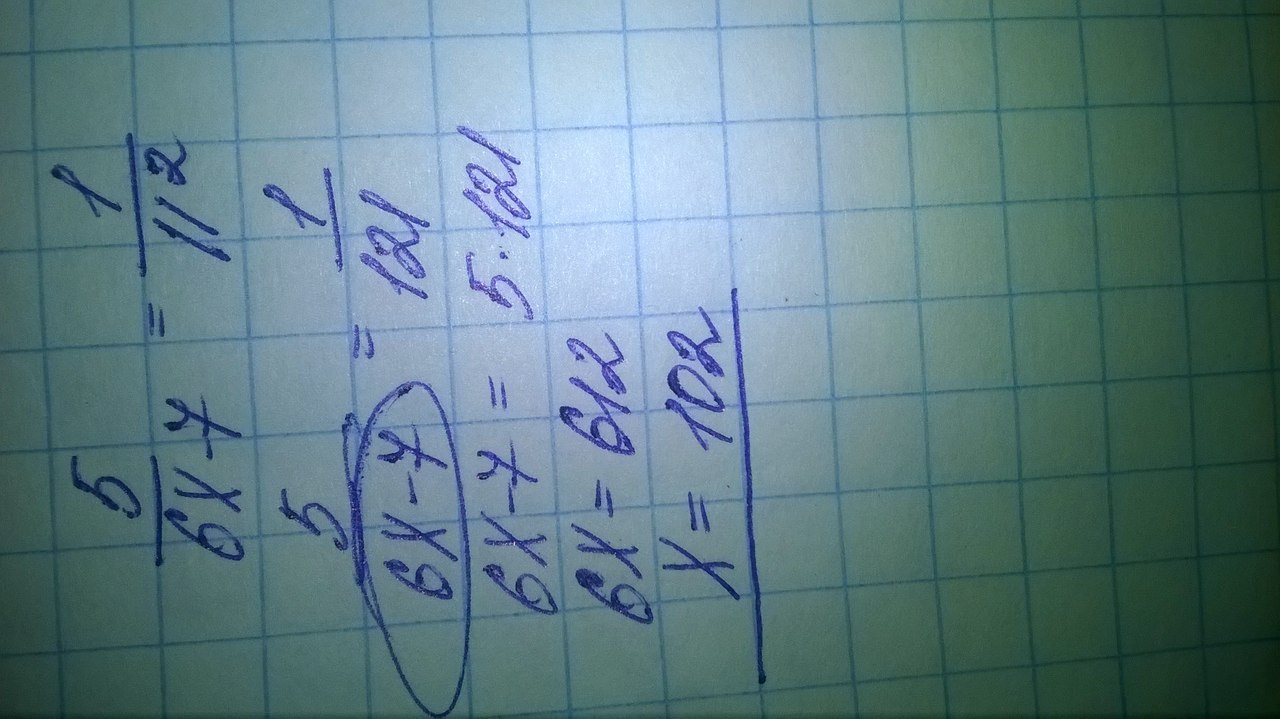 5/(6x-7) = 1/11²
5/(6x-7) = 1/121
6x-7 = 5·121
6x = 612
x = 102